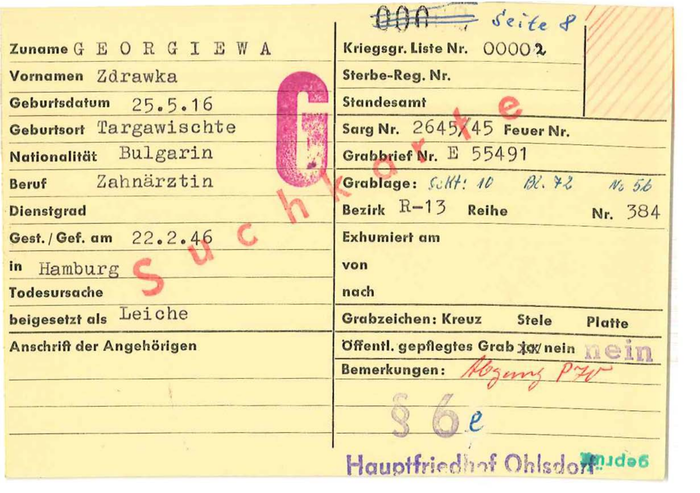 000 Seite 8
Zuname GEORGIEWA
Vornamen Zdrawka
Geburtsdatum 25.5.16
Geburtsort Targawischte
Nationalität Bulgarin
Beruf Zahnärztin
Dienstgrad
Gest./Gef. am 22.2.46
in Hamburg
Todesursache
beigesetzt als Leiche
Anschrift der Angehörigen
G
Suchkarte
Kriegsgr. Liste Nr. 00002
Sterbe-Reg. Nr.
Standesamt
Sarg Nr. 2645/45 Feuer Nr.
Grabbrief Nr. E 55491
Grablage: Sekt: 10 Bl. 72 No 56
Bezirk R-13 Reihe Nr. 384
Exhumiert am
von
nach
Grabzeichen: Kreuz Stele Platte
Öffentl. gepflegtes Grab ja/nein nein
Bemerkungen: Abgang
§ 6 e
Hauptfriedhof Ohlsdorf
geprüft